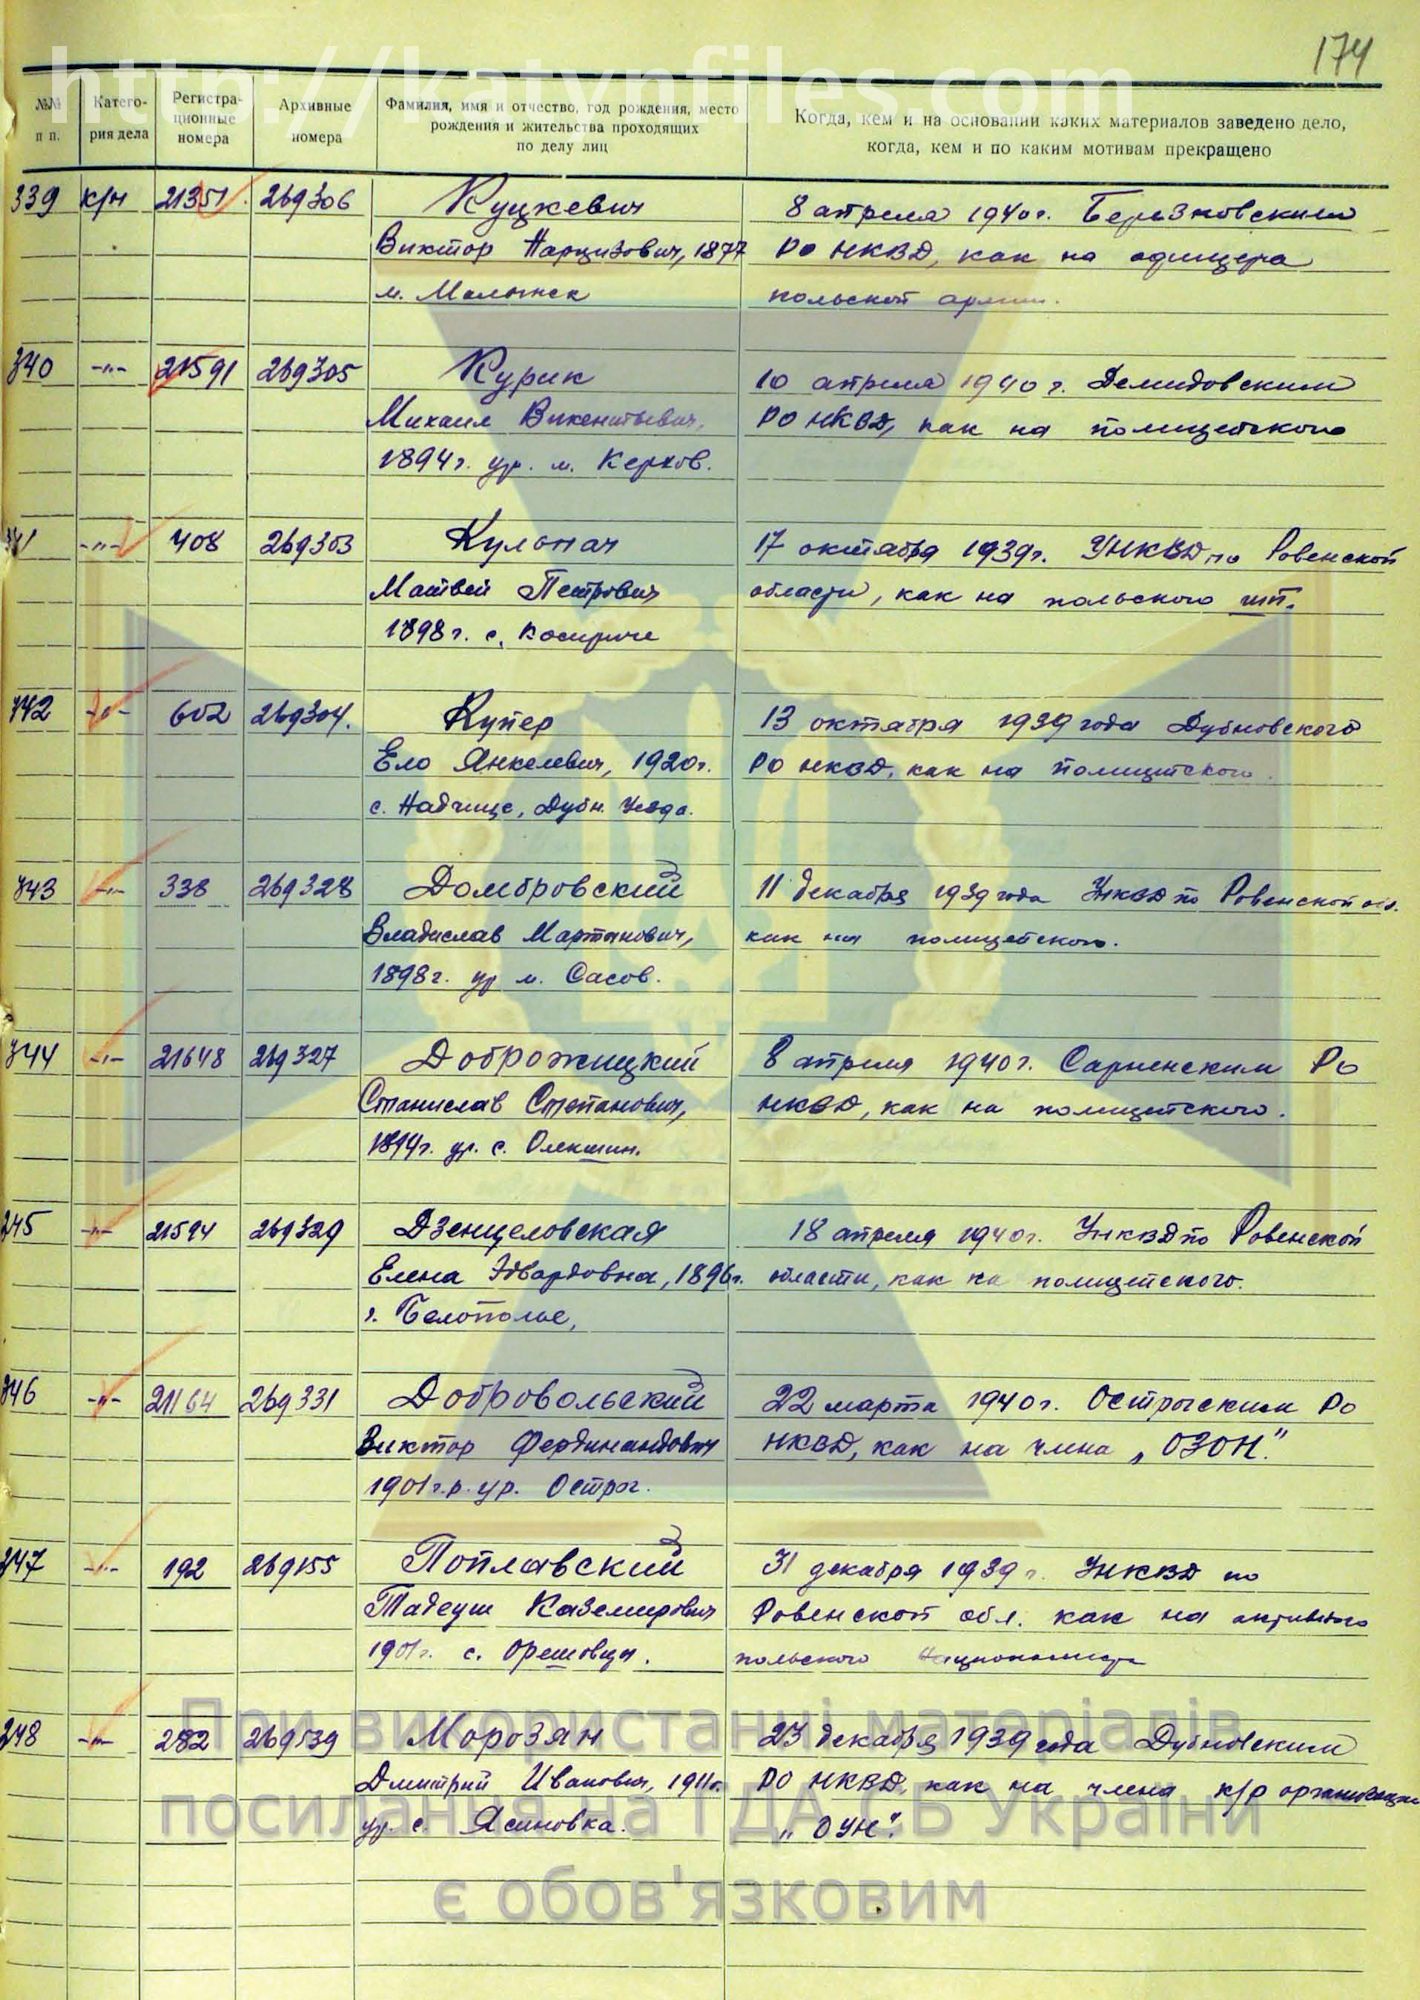 http://katynfiles.com
174
№№ п п.
Катего-
рия дела
Регистра-
ционные
номера
Архивные
номера
Фамилия, имя и отчество, год рождения, место
рождения и жительства проходящих
по делу лиц
Когда, кем и на основании каких материалов заведено дело,
когда, кем и по каким мотивам прекращено
339 к/р 21351 269306 Куцкевич 8 апреля 1940 г. Березновским
Виктор Нарцизович, 1877 РО НКВД, как на офицера
м. польской армии.
340 -"- 21591 269305 Курик 10 апреля 1940 г. Демидовским
Михаил Викентьевич, РО НКВД, как на полицейского
1894 г. ур. м.
341 -"- 408 269303 17 октября 1939 г. УНКВД по Ровенской
Матвей Петрович области, как на польского
1898 г. с.
342 -"- 602 269304. Купер 13 октября 1939 года Дубновского
Ело Янкелевич, 1920 г. РО НКВД, как на полицейского.
с. Надчице, Дубн. уезда.
343 -"- 338 269328 Домбровский 11 декабря 1939 года УНКВД по Ровенской обл.
Владислав Мартынович, как на полицейского.
1898 г. ур м. Сасов.
344 -"- 21648 269327 Доброжицкий 8 апреля 1940 г. Сарненским РО
Станислав Степанович, НКВД, как на полицейского.
1894 г. ур. с. Олекшин.
245 -"- 21594 269329 Дзенцеловская 18 апреля 1940 г. УНКВД по Ровенской
Елена Эдвардовна, 1896 г. области, как на полицейского.
г. Белополье,
346 -"- 21164 269331 Добровольский 22 марта 1940 г. Острогским РО
Виктор Фердинандович НКВД, как на члена „ОЗОН".
1901 г.р. ур. Острог.
247 -"- 192 269155 Поплавский 31 декабря 1939 г. УНКВД по
Тадеуш Каземирович Ровенской обл. как на активного
1901 г. с. Орешовцы. польского националиста
248 -"- 282 269539 Морозян 23 декабря 1939 года Дубновским
Дмитрий Иванович, 1911 г. РО НКВД, как на члена к/р организации
ур. с. Ясиновка. „ОУН".
При використанні матеріалів
посилання на ГДА СБ України
є обов'язковим